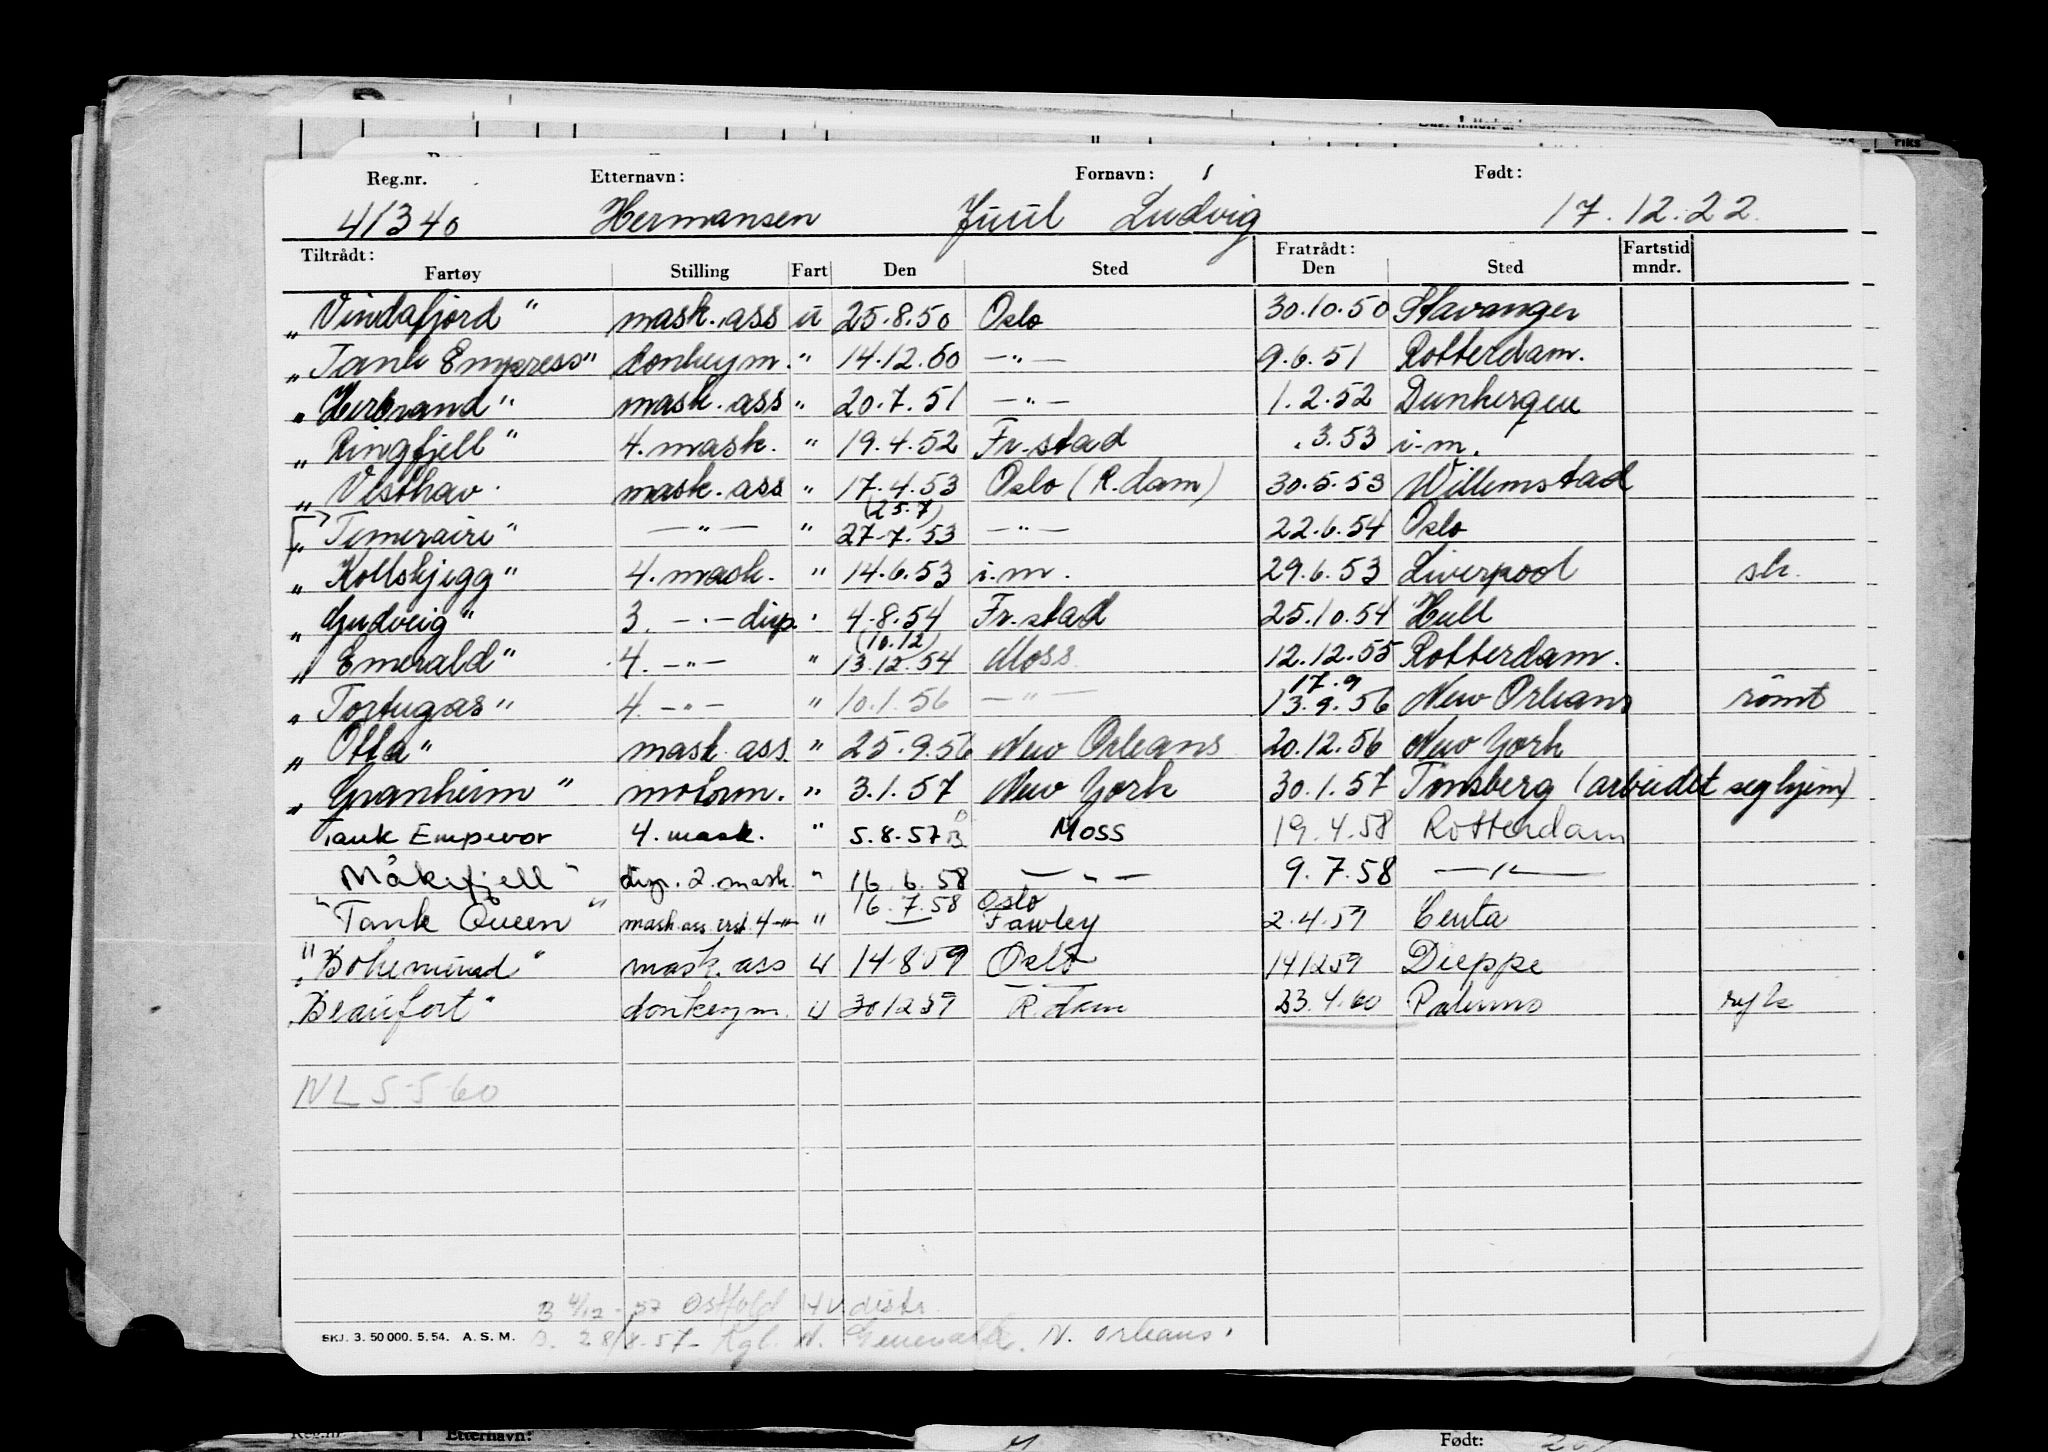 Reg.nr. Etternavn: Fornavn: Født:
41340 Hermansen Juul Ludvig 17.12.22.
Tiltrådt: Fratrådt: Fartstid
Fartøy Stilling Fart Den Sted Den Sted mndr.
"Vindafjord" mask.ass u 25.8.50 Oslo 30.10.50 Stavanger
"Tank Empress" donkeym. " 14.12.50 —"— 9.6.51 Rotterdam.
"Herbrand" mask.ass " 20.7.51 —"— 1.2.52 Dunkerque
"Ringfjell" 4.mask. " 19.4.52 Fr.stad .3.53 i.m.
"Vesthav. mask.ass " 17.4.53 Oslo (R.dam) 30.5.53 Willemstad
(25.7)
"Temeraire" —"— " 27.7.53 —"— 22.6.54 Oslo
"Kollskjegg" 4.mask. " 14.6.53 i.m. 29.6.53 Liverpool sk.
"Gudveig" 3. —"— disp. " 4.8.54 Fr.stad 25.10.54 Hull
(10.12)
"Emerald" 4. —"— " 13.12.54 Moss 12.12.55 Rotterdam.
17.9
"Tortugas" 4. —"— " 10.1.56 —"— 13.9.56 New Orleans rømt
"Otta" mask ass. " 25.9.56 New Orleans 20.12.56 New York
"Granheim" motorm. " 3.1.57 New York 30.1.57 Tønsberg (arbeidet seg hjem)
Tank Emperor 4. mask. " 5.8.57 Moss 19.4.58 Rotterdam
Måkefjell" disp. 2. mask. " 16.6.58 —"— 9.7.58 —"—
Oslo
"Tank Queen" mask.ass erst. 4 —"— " 16.7.58 Fawley 2.4.59 Ceuta
"Bohemund" mask.ass u 14859 Oslo 141259 Dieppe
Beaufort" donkeym. u 301259 R.dam 23.4.60 Palermo syk
NL 5-5-60
B 4/12-57 Østfold HV distr.
SKJ. 3. 50 000. 5. 54. A. S. M. D. 28/8-57- Kgl. N. N. Orleans.
Reg.nr. Etternavn: Født: